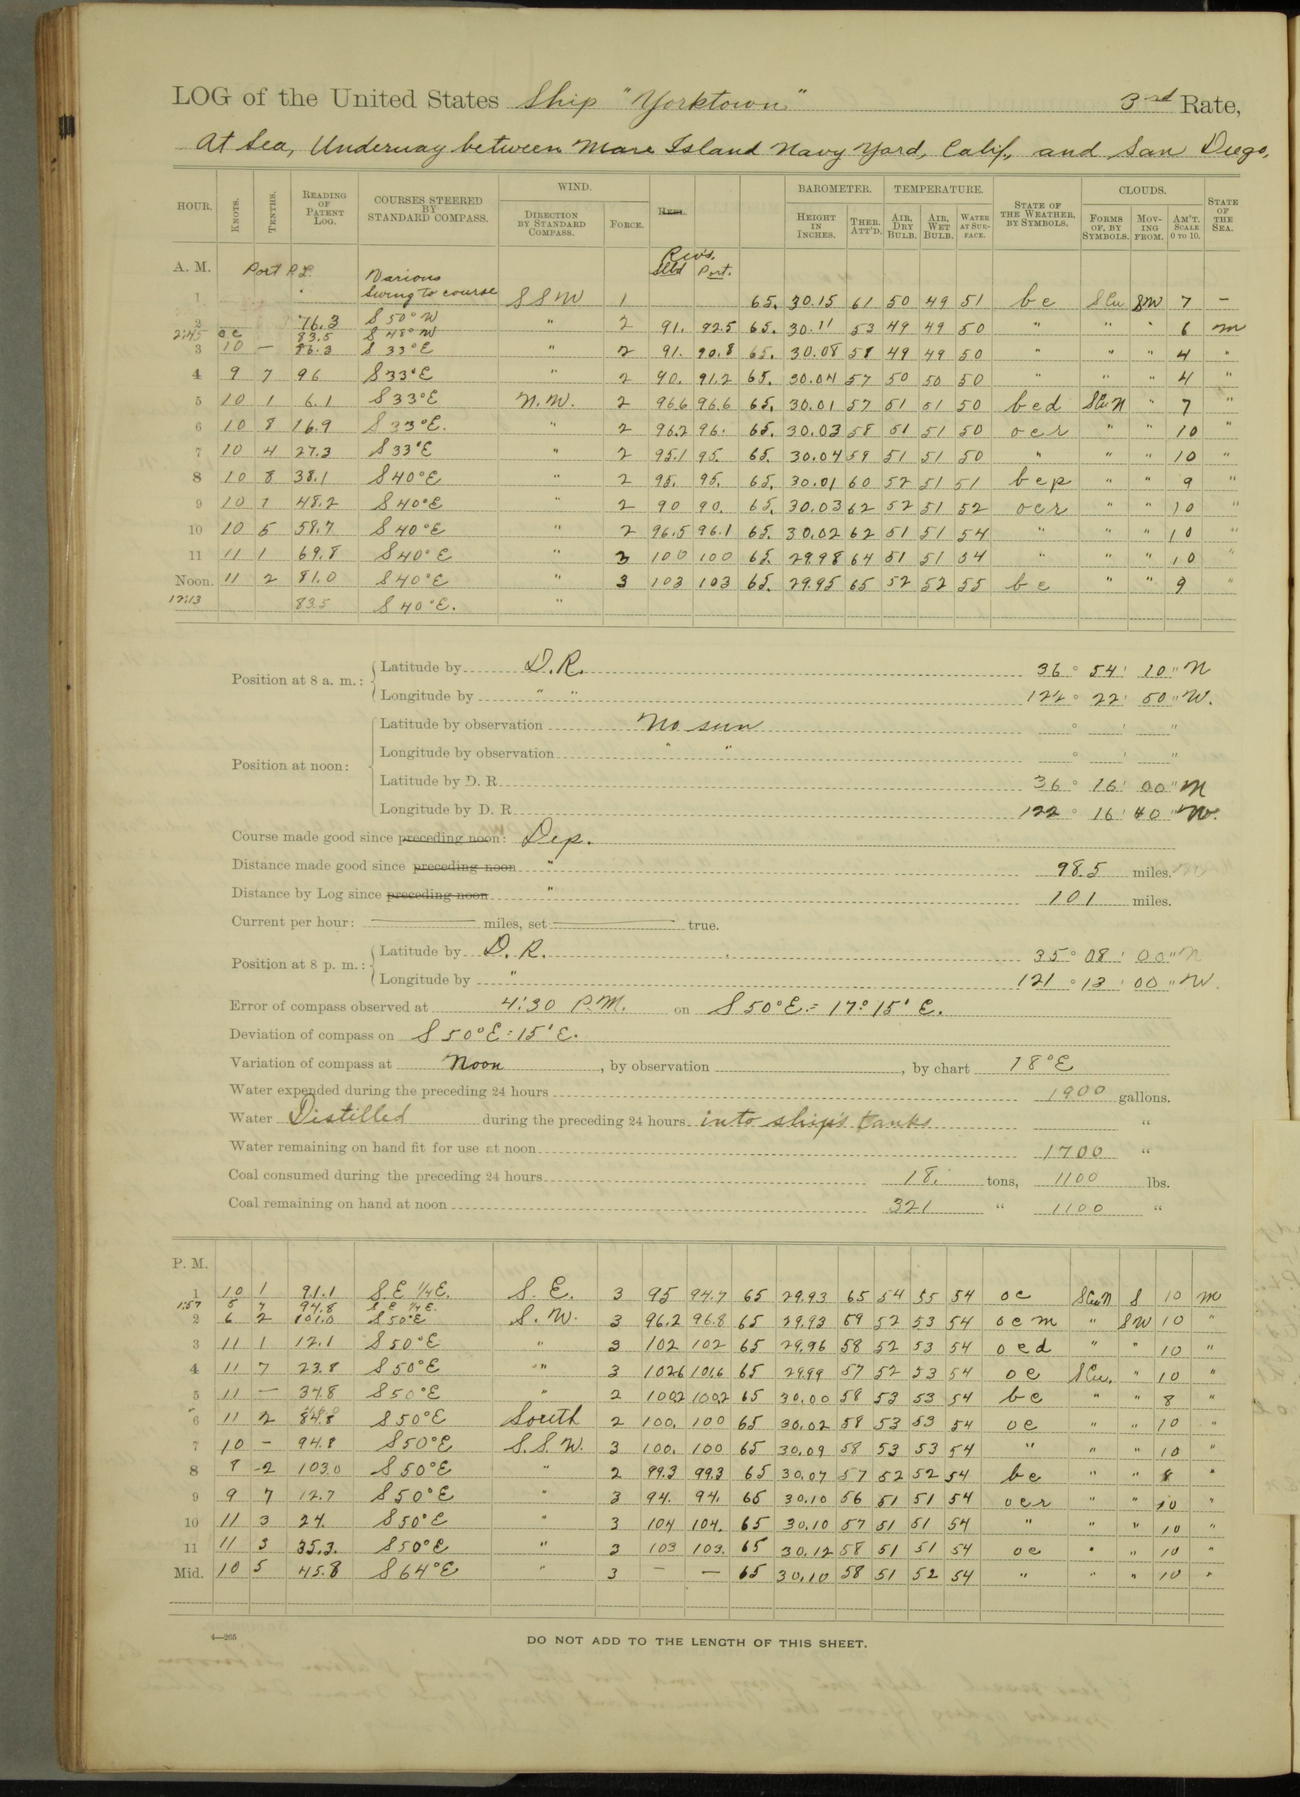 LOG of the United States Ship "Yorktown" 3rd Rate,
At Sea, Underway between Mare Island Navy Yard, Calif., and San Diego,
HOUR. KNOTS. TENTHS. READING OF PATENT LOG. COURSES STEERED BY STANDARD COMPASS. WIND. DIRECTION BY STANDARD COMPASS. FORCE. BAROMETER. HEIGHT IN INCHES. THER. ATT'D. TEMPERATURE. AIR, DRY BULB. AIR, WET BULB. WATER AT SURFACE. STATE OF THE WEATHER, BY SYMBOLS. CLOUDS. FORMS OF, BY SYMBOLS. MOVING FROM. AM'T. SCALE 0 TO 10. STATE OF THE SEA.
Rev's.
A. M. Port P.L. Various Stbd Port.
1 Swing to course S S W 1 65. 30.15 61 50 49 51 b c S Cu SW 7 –
2 76.3 S 50° W " 2 91. 92.5 65. 30.11 53 49 49 50 " " " 6 m
2:45 83.5 S 48° W
3 10 – 86.3 S 33° E " 2 91. 90.8 65. 30.08 58 49 49 50 " " " 4 "
4 9 7 96 S 33° E " 2 90. 91.2 65. 30.04 57 50 50 50 " " " 4 "
5 10 1 6.1 S 33° E N.W. 2 96.6 96.6 65. 30.01 57 51 51 50 b c d S Cu N " 7 "
6 10 8 16.9 S 33° E. " 2 96.2 96. 65. 30.03 58 51 51 50 o c r " " 10 "
7 10 4 27.3 S 33° E " 2 95.1 95. 65. 30.04 59 51 51 50 " " " 10 "
8 10 8 38.1 S 40° E " 2 95. 95. 65. 30.01 60 52 51 51 b c p " " 9 "
9 10 1 48.2 S 40° E " 2 90 90. 65. 30.03 62 52 51 52 o c r " " 10 "
10 10 5 58.7 S 40° E " 2 96.5 96.1 65. 30.02 62 51 51 54 " " " 10 "
11 11 1 69.8 S 40° E " 3 100 100 65. 29.98 64 51 51 54 " " " 10 "
Noon. 11 2 81.0 S 40° E " 3 103 103 65. 29.95 65 52 52 55 b c " " 9 "
12:13 83.5 S 40° E. "
Position at 8 a. m.: Latitude by D. R. 36° 54' 10" N
Longitude by " " 122° 22' 50" W.
Position at noon: Latitude by observation No sun ° ' "
Longitude by observation " " ° ' "
Latitude by D. R. 36° 16' 00" N
Longitude by D. R. 122° 16' 40" W.
Course made good since preceding noon: Dep.
Distance made good since preceding noon " 98.5 miles.
Distance by Log since preceding noon " 101 miles.
Current per hour: miles, set true.
Position at 8 p. m.: Latitude by D. R. 35° 08' 00" N
Longitude by " 121° 13' 00" W.
Error of compass observed at 4:30 P.M. on S 50° E. = 17° 15' E.
Deviation of compass on S 50° E = 15' E.
Variation of compass at Noon, by observation , by chart 18° E
Water expended during the preceding 24 hours 1900 gallons.
Water Distilled during the preceding 24 hours into ship's tanks "
Water remaining on hand fit for use at noon 1700 "
Coal consumed during the preceding 24 hours 18. tons, 1100 lbs.
Coal remaining on hand at noon 321 " 1100 "
P. M.
1 10 1 91.1 S.E. ¼ E. S. E. 3 95 94.7 65 29.93 65 54 55 54 o c S Cu N S 10 m
1:57 5 7 94.8 S. E ¼ E.
2 6 2 101.0 S 50° E S. W. 3 96.2 96.8 65 29.93 59 52 53 54 o c m " SW 10 "
3 11 1 12.1 S 50° E " 3 102 102 65 29.96 58 52 53 54 o c d " " 10 "
4 11 7 23.8 S 50° E " 3 102.6 101.6 65 29.99 57 52 53 54 o c S Cu. " 10 "
5 11 – 34.8 S 50° E " 2 100.2 100.2 65 30.00 58 53 53 54 b c " " 8 "
6 11 2 84.8 S 50° E South 2 100. 100 65 30.02 58 53 53 54 o c " " 10 "
7 10 – 94.8 S 50° E S. S. W. 3 100. 100 65 30.09 58 53 53 54 " " " 10 "
8 8 2 103.0 S 50° E " 2 99.3 99.3 65 30.07 57 52 52 54 b c " " 8 "
9 9 7 12.7 S 50° E " 3 94. 94. 65 30.10 56 51 51 54 o c r " " 10 "
10 11 3 24. S 50° E " 3 104 104. 65 30.10 57 51 51 54 " " " 10 "
11 11 3 35.3. S 50° E " 3 103 103. 65 30.12 58 51 51 54 o c " " 10 "
Mid. 10 5 45.8 S 64° E " 3 – – 65 30.10 58 51 52 54 " " " 10 "
4—265
DO NOT ADD TO THE LENGTH OF THIS SHEET.